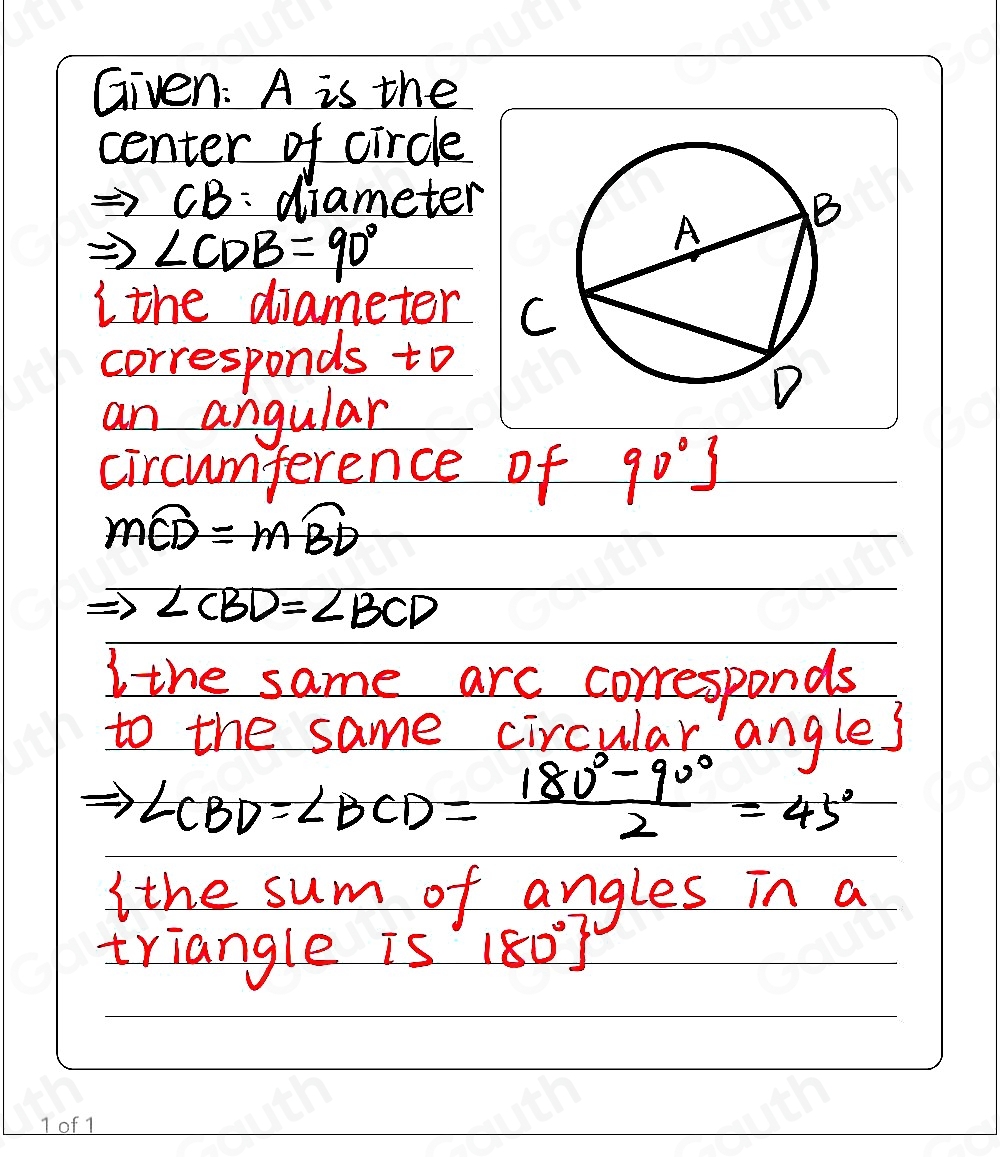 Given: A is the
center of circle
⇒ CB: diameter
⇒ ∠CDB = 90°
{the diameter
corresponds to
an angular
circumference of 90°}
A
B
C
D
mC͡D = mB͡D
⇒ ∠CBD = ∠BCD
{the same arc corresponds
to the same circular angle}
⇒ ∠CBD = ∠BCD = (180° - 90°)/2 = 45°
{the sum of angles in a
triangle is 180°}
1 of 1
Gauth